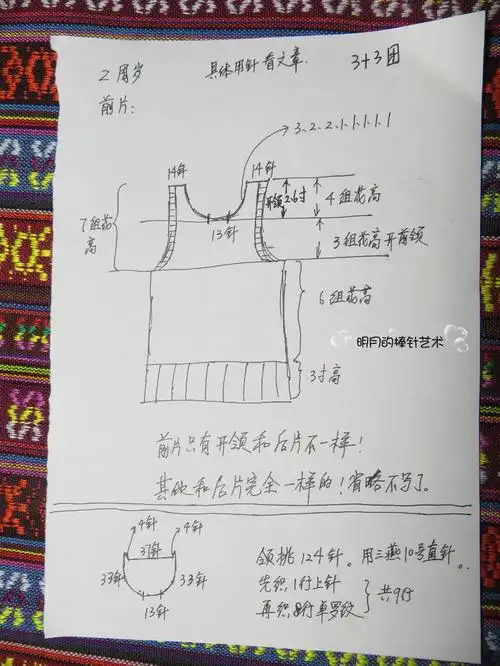 2周岁 具体用针看文章. 3+3团
前片:
3、2、2、1、1、1、1、1
14针 14针
7组花高
开领2.6寸
4组花高
13针
3组花高开前领
6组花高
明月的棒针艺术
3寸高
前片只有开领和后片不一样!
其他和后片完全一样的!省略不写了。
4针 4针
37针
33针 33针
13针
领挑124针。用三燕10号直针。
先织1行上针
再织8行单罗纹
共9行